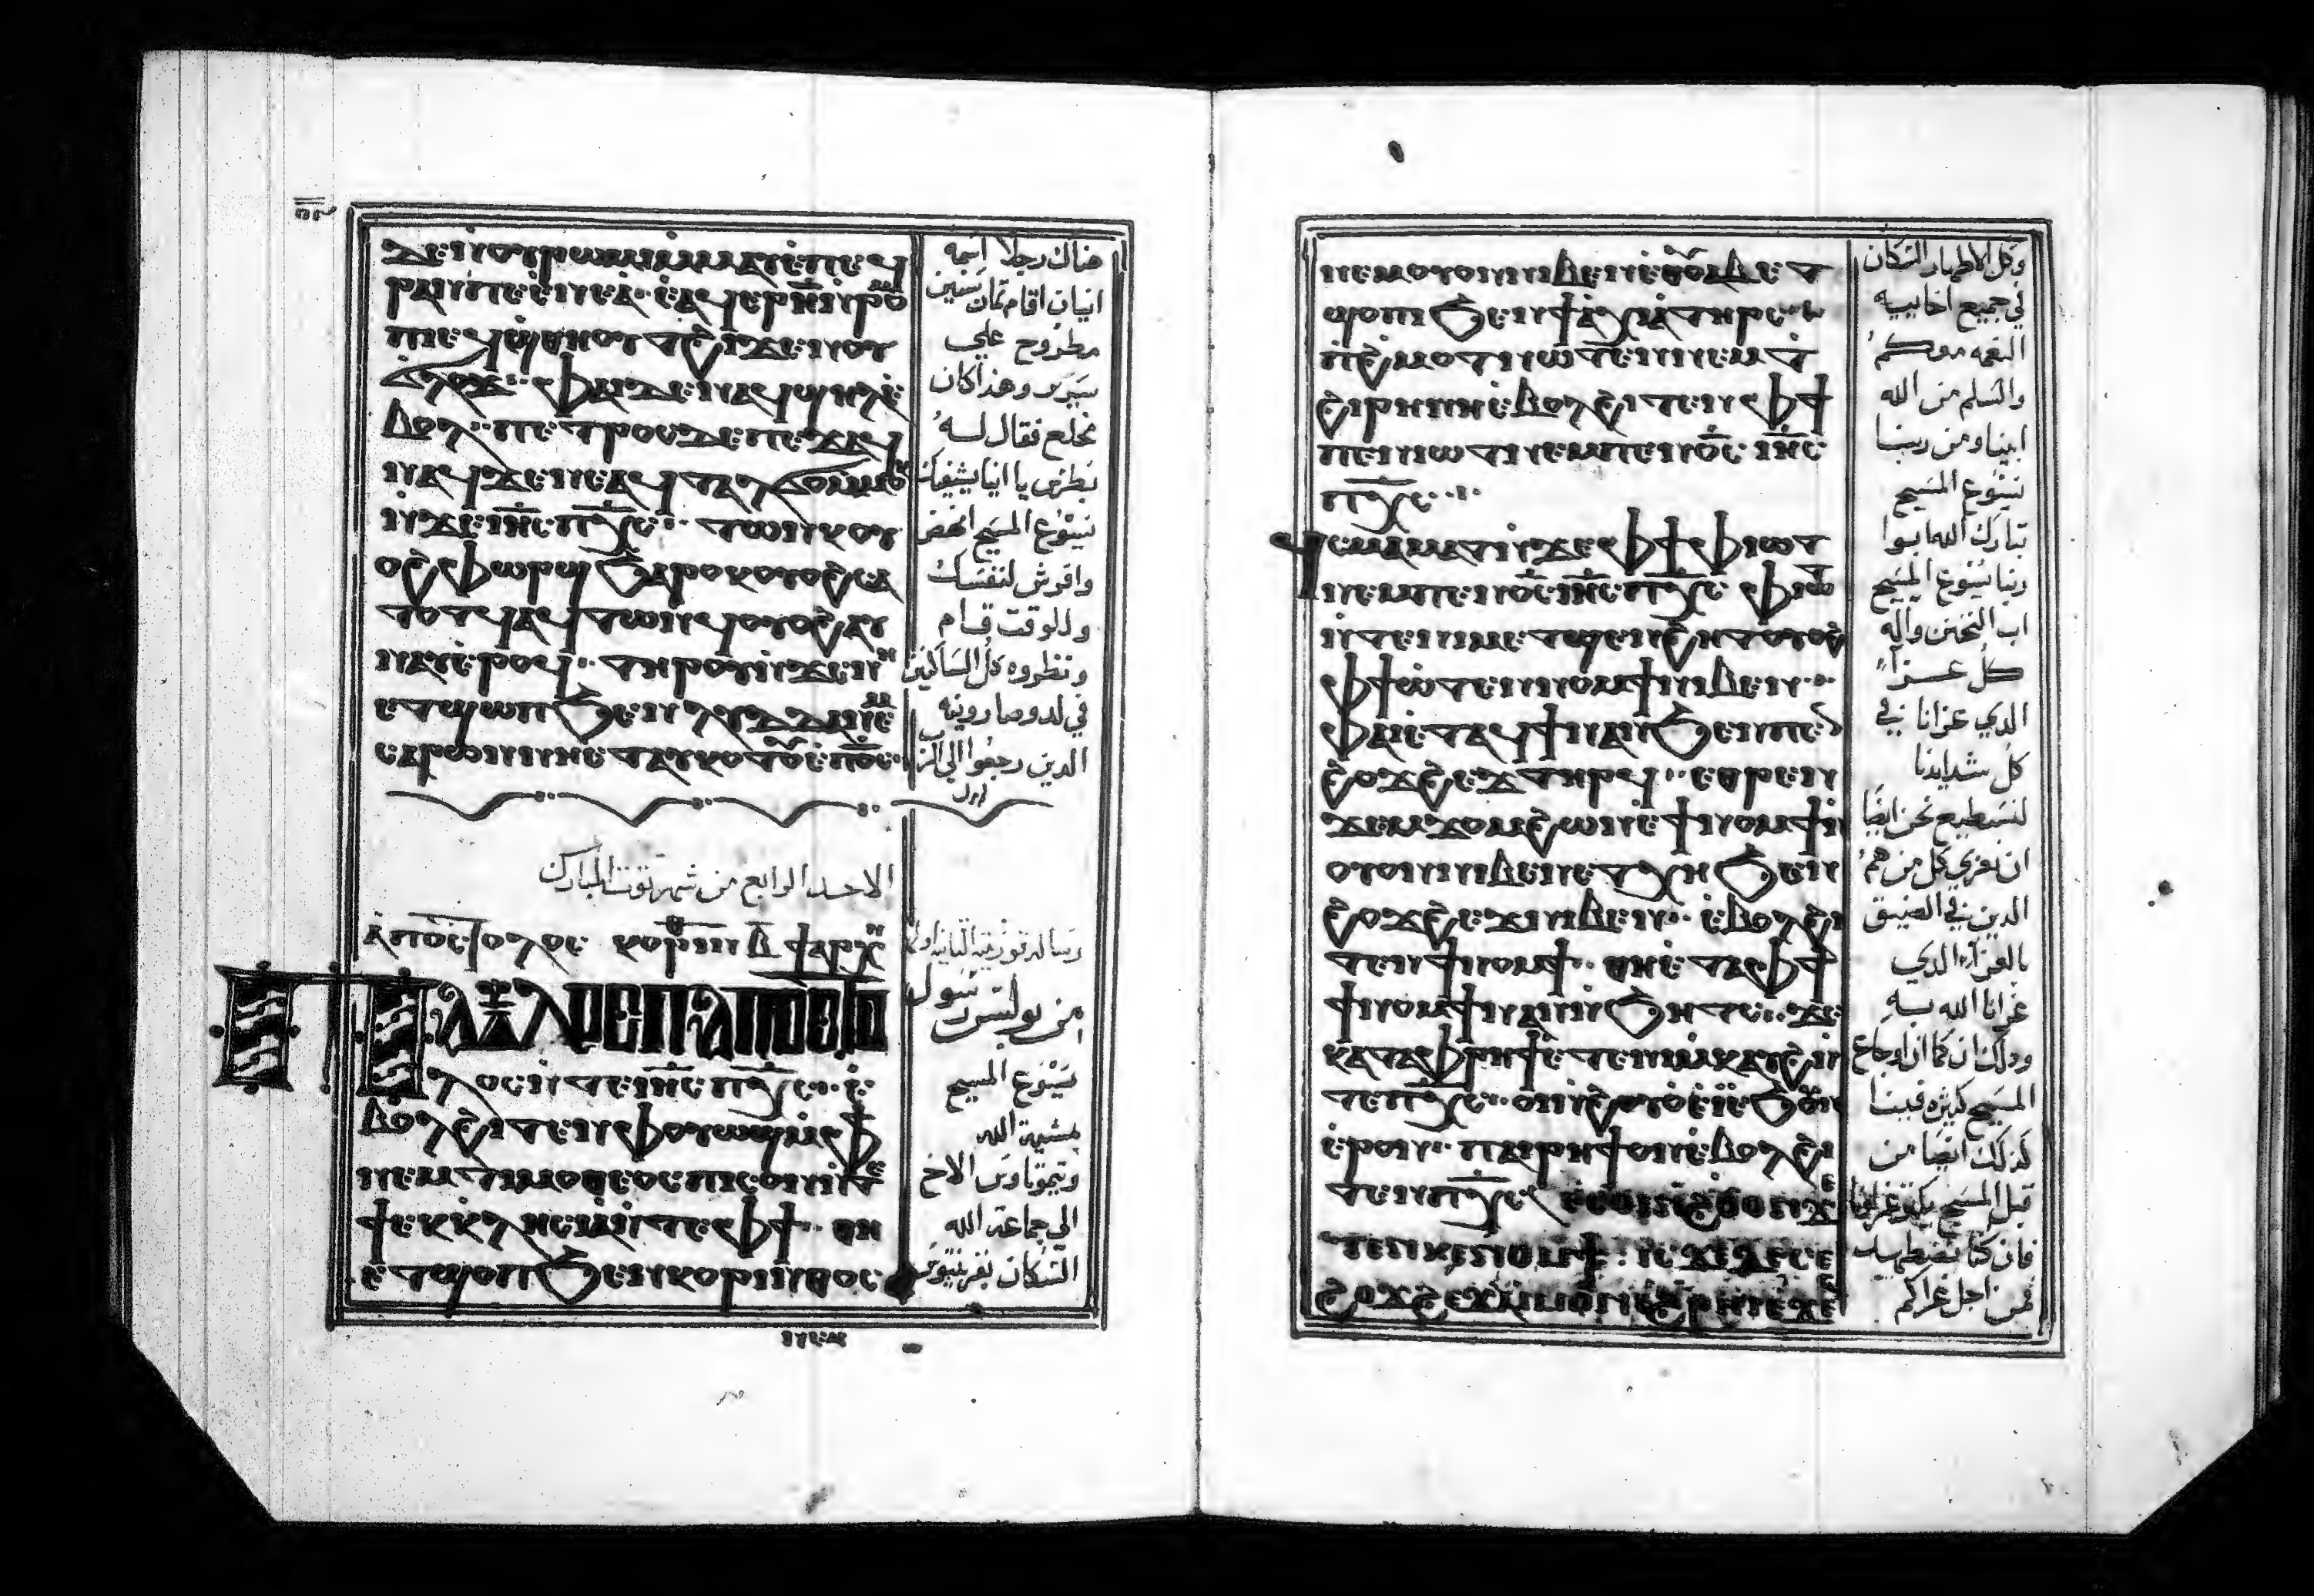 ⲇⲉ ⲛⲟⲩⲣⲱⲙⲓ ⲙ̀ⲙⲁⲩ ⲉ̀ⲡⲉϥ
ⲣⲁⲛ ⲡⲉ ⲉ̀ⲛⲉⲁ· ⲉ̀ⲁϥⲉⲣ ⲏ̅ ⲛ̀ⲣⲟⲙ
ⲡⲓ ⲉϥϣⲑⲏⲟⲩⲧ ϩⲓϫⲉⲛ ⲟⲩ
ϭⲗⲟϫ·· ⲫⲁⲓ ⲇⲉ ⲛⲁϥϣⲏⲗ ⲉ̀
ⲃⲟⲗ·· ⲡⲉⲧⲣⲟⲥ ⲇⲉ ⲡⲉϫⲁϥ
ⲛⲁϥ ϫⲉ ⲉⲛⲉⲁ ϥⲧⲁⲗϭⲟ ⲙ̀ⲙⲟⲕ
ⲛ̀ϫⲉ ⲓⲏ̅ⲥ ⲡⲭ̅ⲥ·· ⲧⲱⲛⲕ ⲟⲩ
ⲟϩ ⲫⲱⲣϣ ϧⲁⲣⲟⲕ ⲟⲩⲟϩ ⲥⲁ
ⲧⲟⲧϥ ⲁϥⲧⲱⲛϥ ⲟⲩⲟϩ ⲁⲩ
ⲛⲁⲩ ⲉ̀ⲣⲟϥ·· ⲧⲏⲣⲟⲩ ⲛ̀ϫⲉ ⲛⲏ
ⲉⲧϣⲟⲡ ϧⲉⲛ ⲗⲩⲇⲇⲁ ⲛⲉⲙ
ⲥⲁⲣⲱⲛ ⲛⲏ ⲉⲧⲁⲩⲕⲟⲧⲟⲩ ⲉ̀ⲡϭ̅ⲥ
هناك رجلا اسمه
انيان اقام تمان سنين
مطروح علي
سرير وهذا كان
مخلع فقال له
بطرس يا انيا يشفيك
يسوع المسيح انهض
وافرش لنفسك
وللوقت قام
ونظروه كل الساكنين
في لد وصارونيه
الدين رجعوا الي الرب
الاحد الرابع من شهر توت المبارك
ⲁ̀ⲡⲟⲥⲧⲟⲗⲟⲥ ⲕⲟⲣⲓⲛ ⲃ̅ ϯⲁⲣⲭⲏ
ⲡⲁⲩⲗⲟⲥ ⲡⲁⲡⲟⲥⲧⲟ
ⲗⲟⲥ ⲛ̀ⲧⲉ ⲓⲏ̅ⲥ ⲡⲭ̅ⲥ·· ⲉ̀
ⲃⲟⲗ ϩⲓⲧⲉⲛ ⲫⲟⲩⲱϣ ⲙ̀ⲫϯ
ⲛⲉⲙ ⲧⲓⲙⲟⲑⲉⲟⲥ ⲡⲓⲥⲟⲛ ⲛ̀
ϯⲉⲕⲕⲗⲏⲥⲓⲁ ⲛ̀ⲧⲉ ⲫϯ·· ⲑⲏ
ⲉⲧϣⲟⲡ ϧⲉⲛ ⲕⲟⲣⲓⲛⲑⲟⲥ
من بولس رسول
يسوع المسيح
بمشية الله
وتيموتاوس الاخ
الي جماعة الله
السكان بقرنتيوس
ⲛⲉⲙ
ⲛⲉⲙ ⲟⲩⲟⲛ ⲛⲓⲃⲉⲛ ⲉ̀ⲑⲟⲩⲁⲃ ⲉⲧ
ϣⲟⲡ ϧⲉⲛ ϯⲁ̀ⲭⲁⲓⲁ̀ ⲧⲏⲣⲥ
ⲡ̀ϩⲙⲟⲧ ⲛⲱⲧⲉⲛ ⲛⲉⲙ ⲧ̀
ϩⲓⲣⲏⲛⲏ ⲉ̀ⲃⲟⲗ ϩⲓⲧⲉⲛ ⲫϯ
ⲡⲉⲛⲓⲱⲧ ⲛⲉⲙ ⲡⲉⲛϭ̅ⲥ ⲓⲏ̅ⲥ
ⲡⲭ̅ⲥ··
ϥⲥⲙⲁⲙⲁⲧ ⲛ̀ϫⲉ ⲫϯ ⲫⲓⲱⲧ
ⲙ̀ⲡⲉⲛϭ̅ⲥ ⲓⲏ̅ⲥ ⲡⲭ̅ⲥ ⲫⲓⲱⲧ
ⲛ̀ⲧⲉ ⲛⲓⲙⲉⲧϣⲉⲛϩⲏⲧ ⲟⲩⲟϩ
ⲫϯ ⲛ̀ⲧⲉ ⲛⲓⲛⲟⲙϯ ⲛⲓⲃⲉⲛ··
ⲫⲁⲓ ⲉ̀ⲧⲁϥϯⲛⲁⲛ ϧⲉⲛ ⲡⲉⲛ
ϩⲟϫϩⲉϫ ⲧⲏⲣϥ·· ⲉⲑⲣⲉⲛ
ϫⲉⲙϫⲟⲙ ϩⲱⲛ ⲉ̀ϯⲛⲟⲙϯ ⲛ̀
ⲟⲩⲟⲛ ⲛⲓⲃⲉⲛ ⲉⲧⲭⲏ ϧⲉⲛ
ϩⲟϫϩⲉϫ ⲛⲓⲃⲉⲛ·· ⲉ̀ⲃⲟⲗ ϩⲓ
ⲧⲉⲛ ϯⲛⲟⲙϯ·· ⲑⲏ ⲉ̀ⲧⲁ ⲫϯ
ϯⲛⲟⲙϯ ⲛⲁⲛ ⲛ̀ϧⲏⲧⲥ·· ϫⲉ
ⲕⲁⲧⲁ ⲫⲣⲏϯ ⲉ̀ⲧⲉ ⲛⲓⲙ̀ⲕⲁⲩϩ ⲛ̀
ⲧⲉ ⲡⲭ̅ⲥ·· ⲟⲓ ⲛ̀ϩⲟⲩⲟ̀ ⲉ̀ϧⲟⲩⲛ
ⲉ̀ⲣⲟⲛ·· ⲡⲁⲓⲣⲏϯ ⲟⲛ ⲉ̀ⲃⲟⲗ ϩⲓ
وكل الاطهار السكان
في جميع اخاييه
النعمه معكم
والسلم من الله
ابينا ومن ربنا
يسوع المسيح
تبارك الله ابوا
ربنا يسوع المسيح
اب التحنن واله
كل عزآ
الدي عزانا في
كل شدايدنا
لنستطيع نحن ايضا
ان نعزي كل من هم
الدين في الضيق
بالعزآ الدي
عزانا الله به
ودلك ان كما ان اوجاع
المسيح كثيره فينا
كدلك ايضا من
قبل المسيح يكثر عزاونا
فان كنا نضطهد
فمن اجل عزاكم